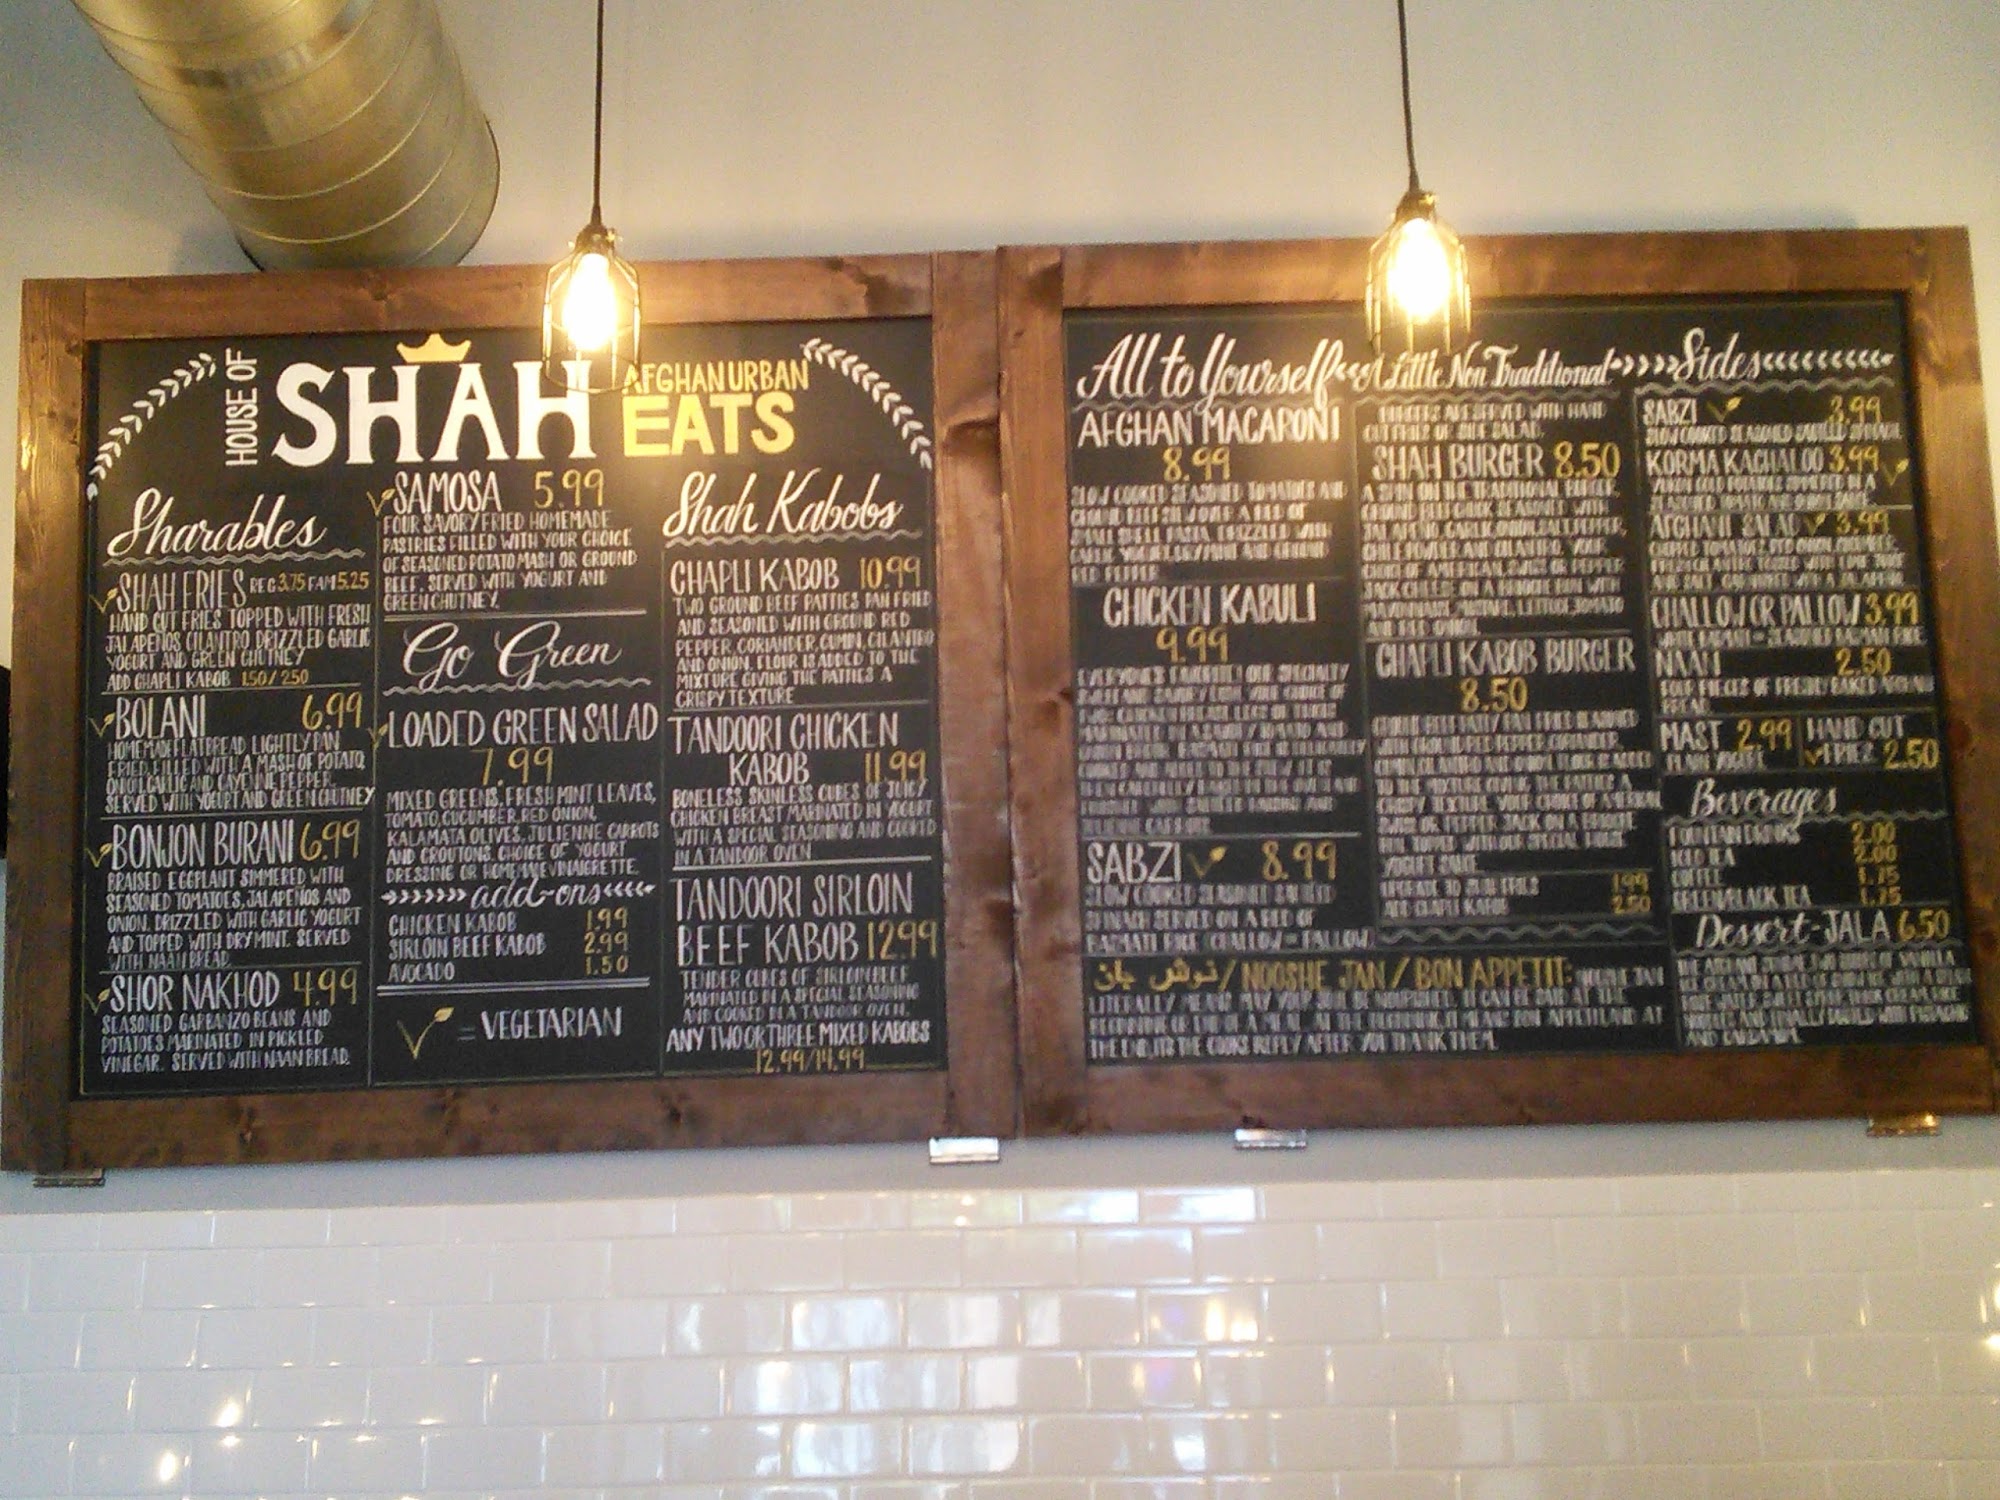 HOUSE OF
SHAH
AFGHAN URBAN
EATS
Sharables
SHAH FRIES REG 3.75 FAM 5.25
HAND CUT FRIES TOPPED WITH FRESH
JALAPEÑOS CILANTRO DRIZZLED GARLIC
YOGURT AND GREEN CHUTNEY
ADD CHAPLI KABOB 1.50 / 2.50
BOLANI 6.99
HOMEMADE FLATBREAD LIGHTLY PAN
FRIED, FILLED WITH A MASH OF POTATO,
ONION, GARLIC AND CAYENNE PEPPER.
SERVED WITH YOGURT AND GREEN CHUTNEY
BONJON BURANI 6.99
BRAISED EGGPLANT SIMMERED WITH
SEASONED TOMATOES, JALAPEÑOS AND
ONION. DRIZZLED WITH GARLIC YOGURT
AND TOPPED WITH DRY MINT. SERVED
WITH NAAN BREAD.
SHOR NAKHOD 4.99
SEASONED GARBANZO BEANS AND
POTATOES MARINATED IN PICKLED
VINEGAR. SERVED WITH NAAN BREAD.
SAMOSA 5.99
FOUR SAVORY FRIED HOMEMADE
PASTRIES FILLED WITH YOUR CHOICE
OF SEASONED POTATO MASH OR GROUND
BEEF. SERVED WITH YOGURT AND
GREEN CHUTNEY.
Go Green
LOADED GREEN SALAD
7.99
MIXED GREENS, FRESH MINT LEAVES,
TOMATO, CUCUMBER, RED ONION,
KALAMATA OLIVES, JULIENNE CARROTS
AND CROUTONS. CHOICE OF YOGURT
DRESSING OR HOMEMADE VINAIGRETTE.
add-ons
CHICKEN KABOB 1.99
SIRLOIN BEEF KABOB 2.99
AVOCADO 1.50
= VEGETARIAN
Shah Kabobs
CHAPLI KABOB 10.99
TWO GROUND BEEF PATTIES PAN FRIED
AND SEASONED WITH GROUND RED
PEPPER, CORIANDER, CUMIN, CILANTRO
AND ONION. FLOUR IS ADDED TO THE
MIXTURE GIVING THE PATTIES A
CRISPY TEXTURE
TANDOORI CHICKEN
KABOB 11.99
BONELESS SKINLESS CUBES OF JUICY
CHICKEN BREAST MARINATED IN YOGURT
WITH A SPECIAL SEASONING AND COOKED
IN A TANDOOR OVEN
TANDOORI SIRLOIN
BEEF KABOB 12.99
TENDER CUBES OF SIRLOIN BEEF
MARINATED IN A SPECIAL SEASONING
AND COOKED IN A TANDOOR OVEN.
ANY TWO OR THREE MIXED KABOBS
12.99/14.99
All to Yourself
AFGHAN MACARONI
8.99
SLOW COOKED SEASONED TOMATOES AND
GROUND BEEF SERVED OVER A BED OF
SMALL SHELL PASTA, DRIZZLED WITH
GARLIC YOGURT, DRY MINT AND GROUND
RED PEPPER
CHICKEN KABULI
9.99
EVERYONE'S FAVORITE! OUR SPECIALTY
SABZI 8.99
SLOW COOKED SEASONED SAUTEED
SPINACH SERVED ON A BED OF
BASMATI RICE (CHALLOW or PALLOW)
A Little Non Traditional
BURGERS ARE SERVED WITH HAND
CUT FRIES OR SIDE SALAD.
SHAH BURGER 8.50
A SPIN ON THE TRADITIONAL BURGER.
GROUND BEEF CHUCK SEASONED WITH
JALAPEÑO, GARLIC, ONION, SALT, PEPPER,
CHILE POWDER AND CILANTRO. YOUR
CHOICE OF AMERICAN, SWISS OR PEPPER
JACK CHEESE ON A BRIOCHE BUN WITH
MAYONNAISE, MUSTARD, LETTUCE, TOMATO
AND RED ONION.
CHAPLI KABOB BURGER
8.50
UPGRADE TO SHAH FRIES 1.99
ADD CHAPLI KABOB 2.50
Sides
SABZI 3.99
SLOW COOKED SEASONED SAUTEED SPINACH
KORMA KACHALOO 3.99
YUKON GOLD POTATOES SIMMERED IN A
SEASONED TOMATO AND ONION SAUCE
AFGHANI SALAD 3.99
CHALLOW OR PALLOW 3.99
NAAN 2.50
FOUR PIECES OF FRESHLY BAKED AFGHAN
BREAD
MAST 2.99
PLAIN YOGURT
HAND CUT
FRIEZ 2.50
Beverages
FOUNTAIN DRINKS 2.00
ICED TEA 2.00
COFFEE 1.75
GREEN/BLACK TEA 1.75
Dessert-JALA 6.50
نوش جان / NOOSHE JAN / BON APPETIT: NOOSHE JAN
LITERALLY MEANS MAY YOUR SOUL BE NOURISHED. IT CAN BE SAID AT THE
BEGINNING OR END OF A MEAL. AT THE BEGINNING, IT MEANS BON APPETIT AND AT
THE END, ITS THE COOKS REPLY AFTER YOU THANK THEM.